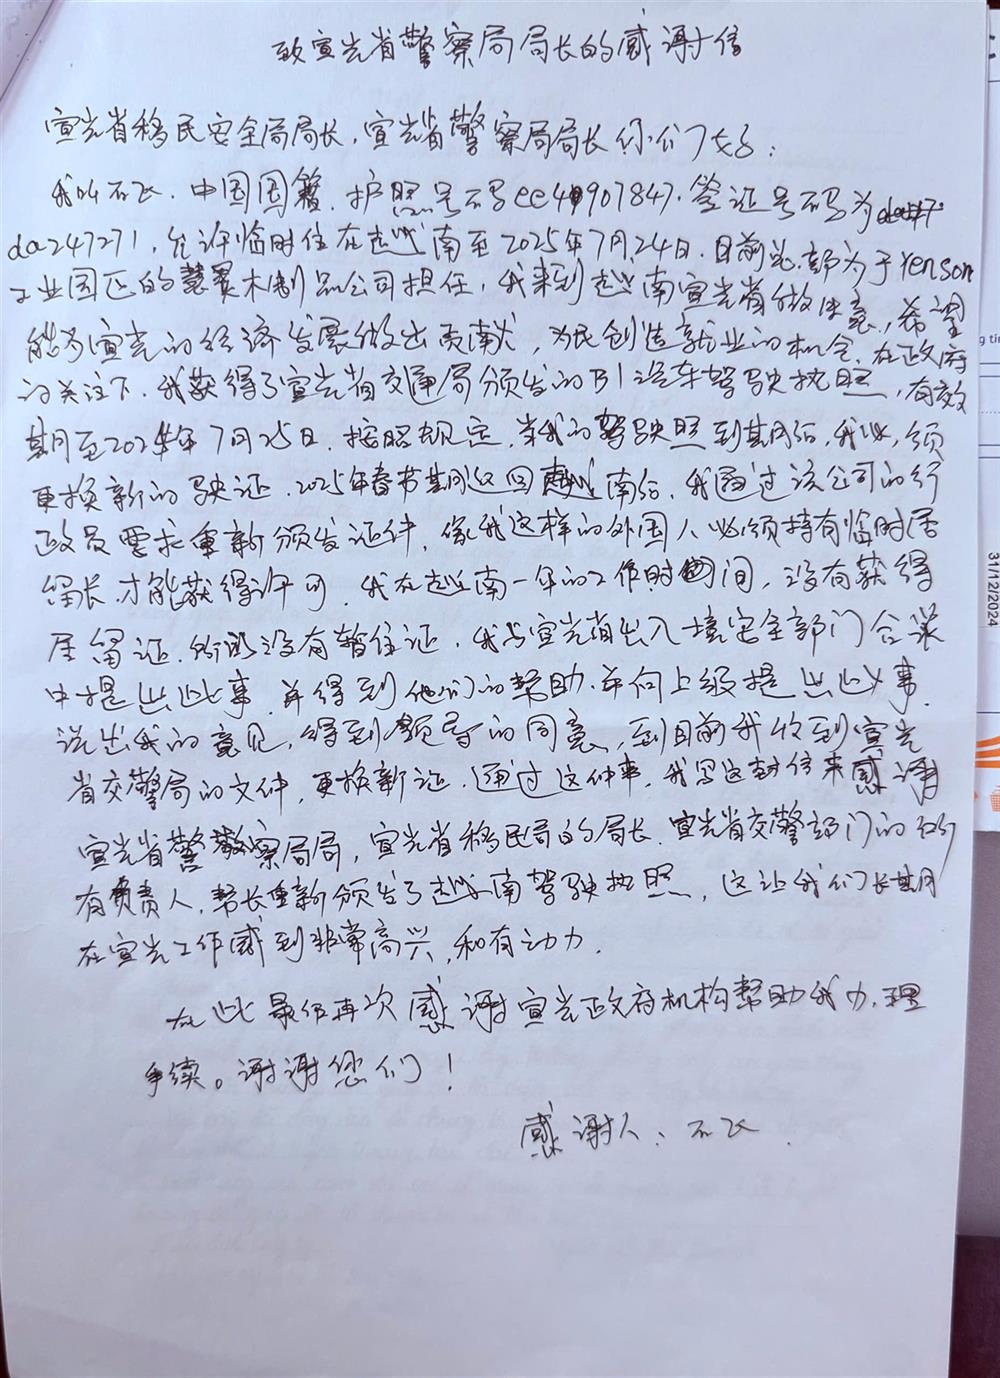 致宣光省警察局局长的感谢信
宣光省移民安全局局长，宣光省警察局局长你们好：
我叫石飞．中国国籍．护照号码ee4 907847．签证号码为
da247271，允许临时住在越南至2025年7月24日．目前 部为于Yenson
工业园区的慧赛木制品公司担任，我来到越南宣光省做生意，希望
能为宣光的经济发展做出贡献，为民创造就业的机会．在政府
的关注下．我获得了宣光省交通局颁发的B1汽车驾驶执照，有效
期至2024年7月25日．按照规定．当我的驾驶照到期后，我必须
更换新的驶证．2025年春节期返回越南后．我通过该公司的行
政员要求重新颁发证件，像我这样的外国人必须持有临时居
留长才能获得许可．我在越南一年的工作时间，没有获得
居留证．所以没有暂住证．我与宣光省出入境安全部门合谈
中提出此事．并得到他们的帮助．并向上级提出此事．
说出我的意见，得到领导的同意，到目前我收到宣光
省交警局的文件，更换新证．通过这件事．我写这封信来感谢
宣光省警察局局，宣光省移民局的局长．宣光省交警部门的所
有负责人，帮长重新颁发了越南驾驶执照，这让我们长期
在宣光工作感到非常高兴，和有动力．
在此最后再次感谢宣光政府机构帮助我办理
手续。谢谢您们！
感谢人：石飞．
31/12/2024